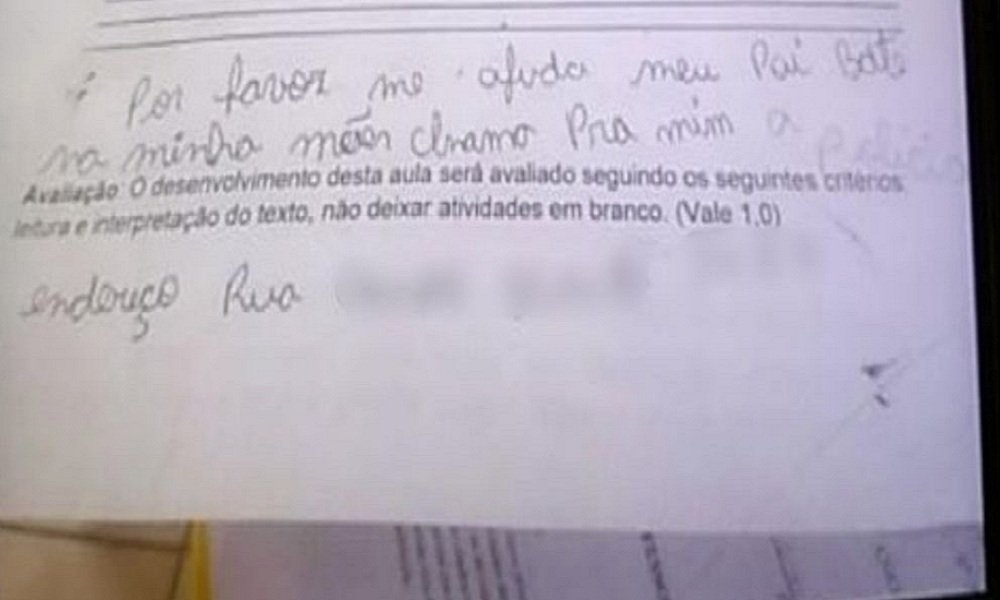 Por favor me ajuda meu Pai Bate
na minha mãe chamo Pra mim a policia
Avaliação O desenvolvimento desta aula será avaliado seguindo os seguintes critérios
leitura e interpretação do texto, não deixar atividades em branco. (Vale 1,0)
endereço Rua